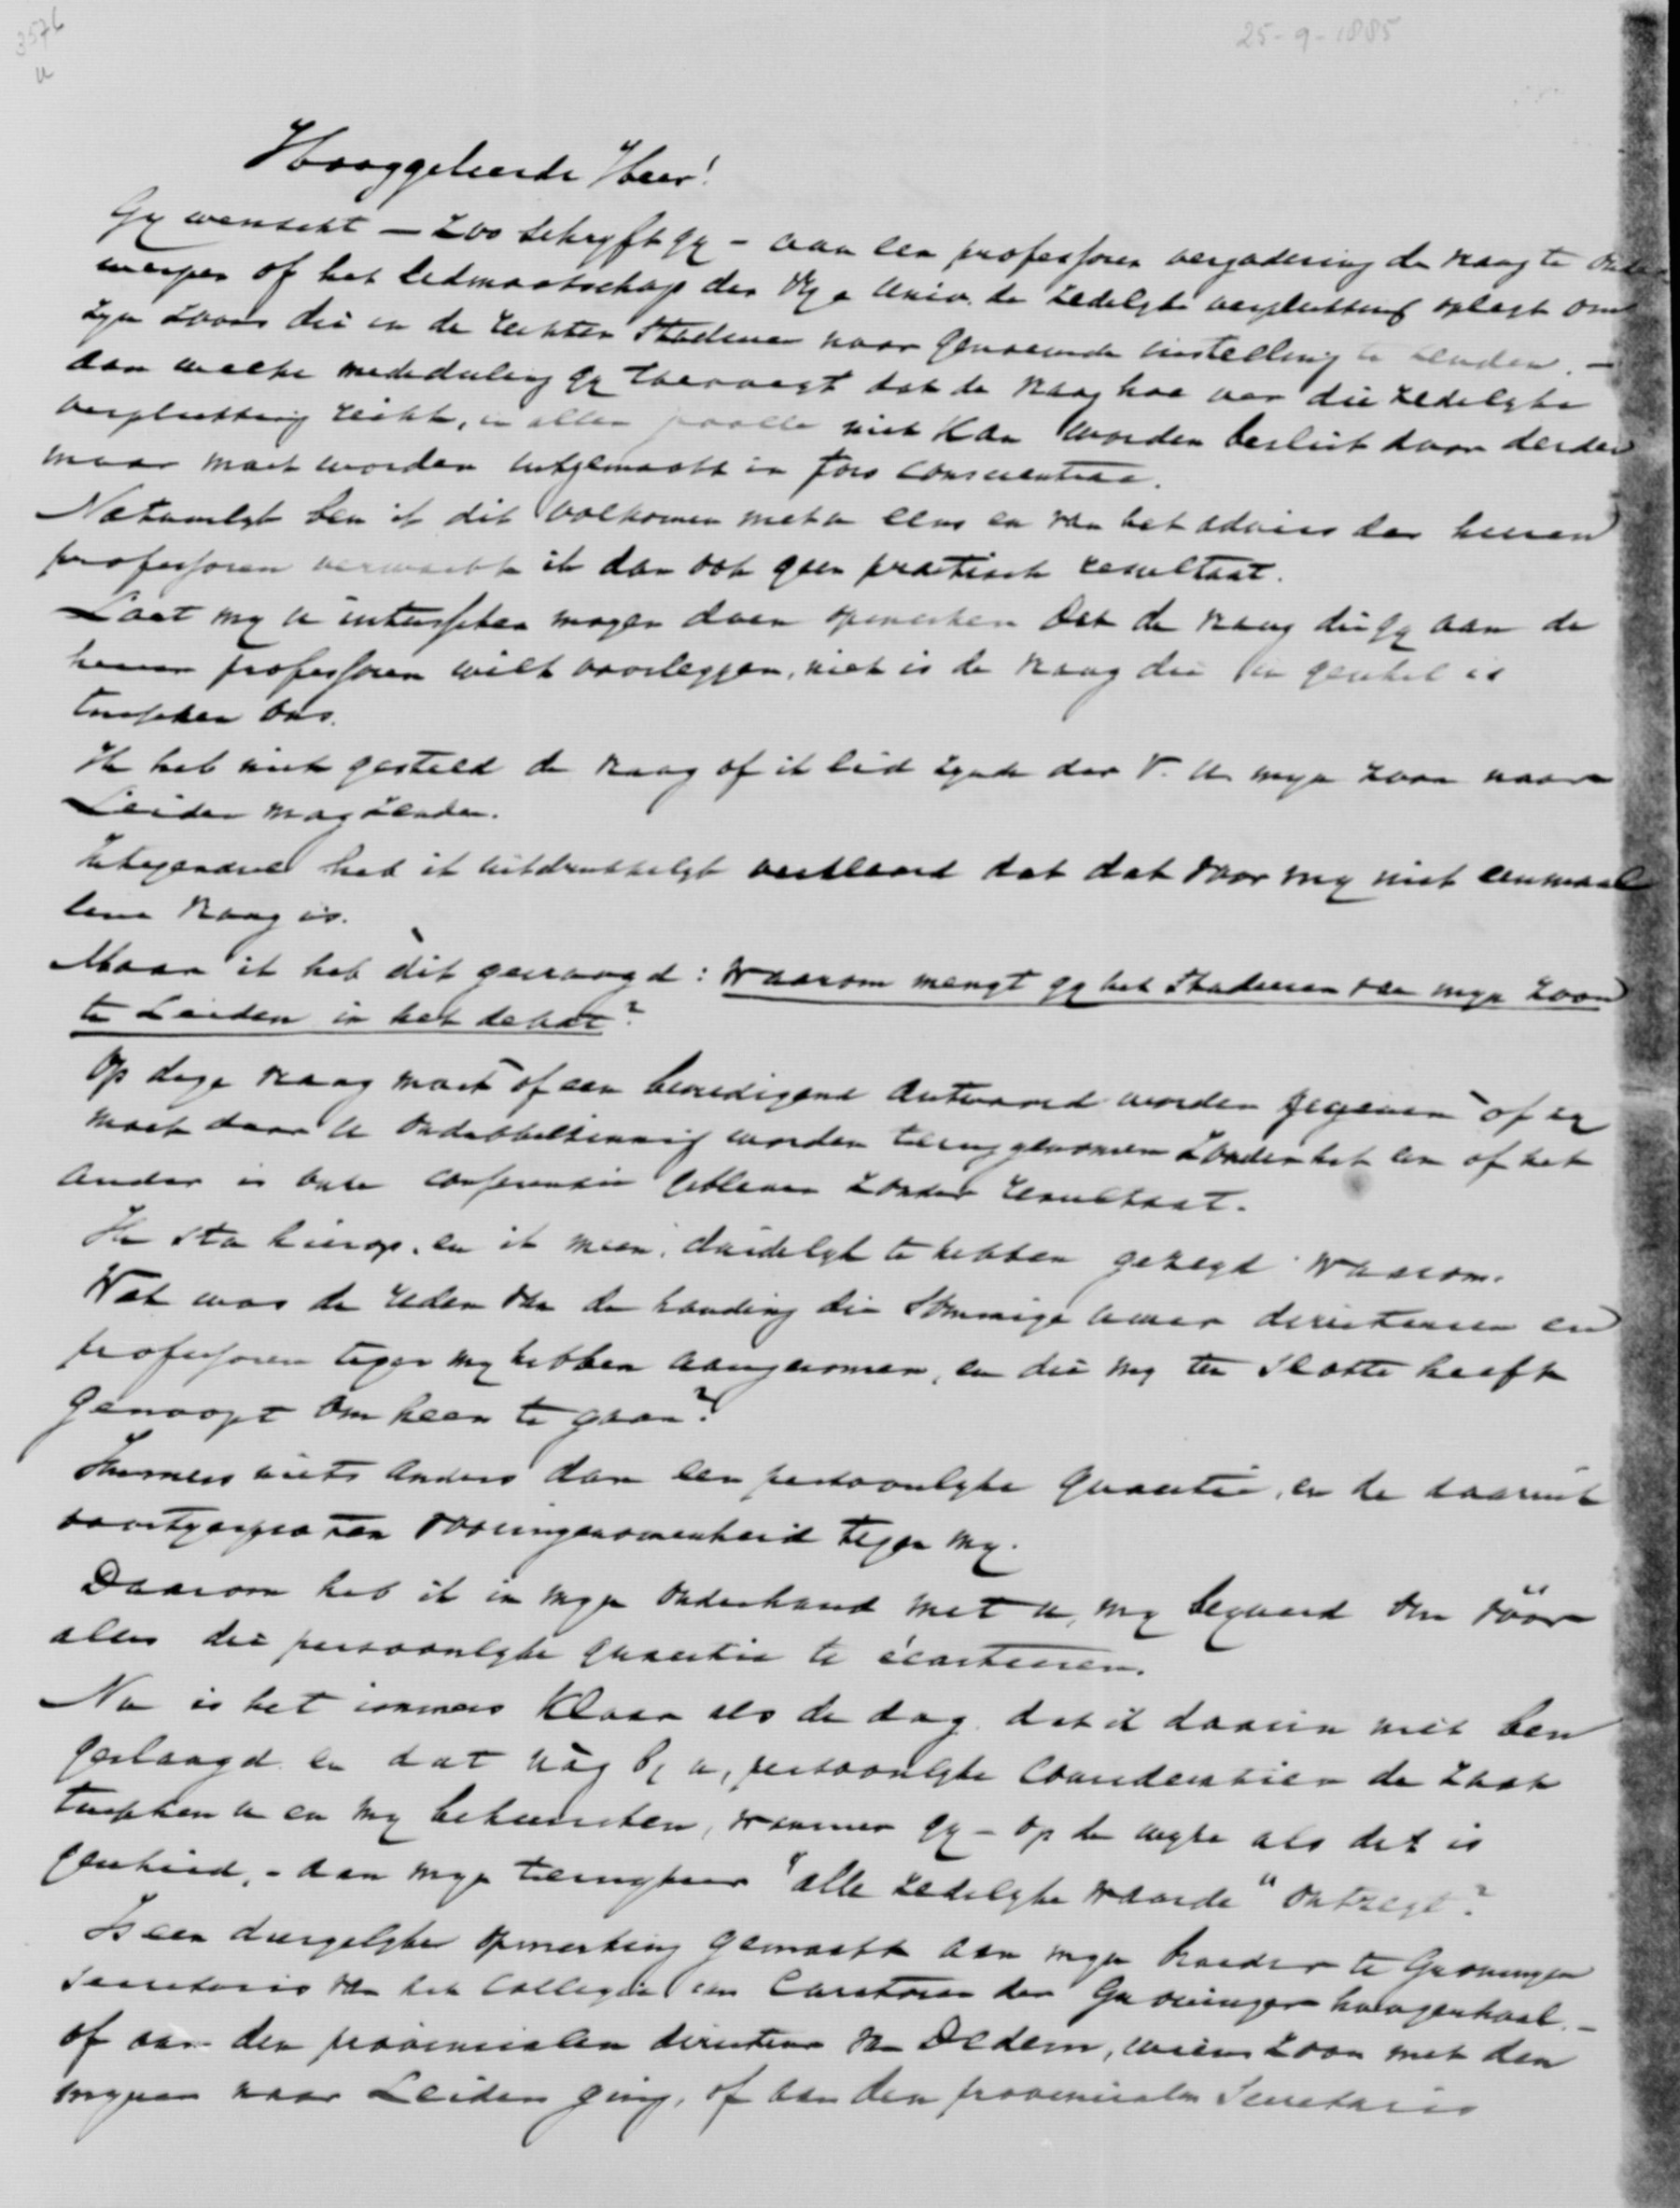 3576
u
25-9-1885
Hooggeleerde Heer!
Gy wenscht — zoo schryft gy – aan een professoren vergadering de vraag te onder
werpen of het ledmaatschap der Vrye Univ. de zedelyke verplichting oplegt om
zyn zoons die in de rechten studeeren naar genoemde instelling te zenden. —
aan welke mededeeling gy toevoegt dat de vraag hoe ver die zedelyke
verplichting reikt, in allen gevalle niet kan worden beslist door derden
maar moet worden uitgemaakt in foro conscientiae.
Natuurlyk ben ik dit volkomen met u eens en van het advies der heeren
professoren verwacht ik dan ook geen practisch resultaat.
Laat my u intusschen mogen doen opmerken dat de vraag die gy aan de
heeren professoren wilt voorleggen, niet is de vraag die in geschil is
tusschen ons.
Ik heb niet gesteld de vraag of ik lid zynde der V. U. myn zoon naar
Leiden mag zenden.
Integendeel heb ik uitdrukkelyk verklaard dat dat voor my niet eenmaal
eene vraag is.
Maar ik heb dit gevraagd: Waarom mengt gy het studeeren van myn zoon
te Leiden in het debat?
Op deze vraag moet òf een bevredigend antwoord worden gegeven òf zy
moet door u ondubbelzinnig worden teruggenomen zonder het een of het
ander is onze conferentie gebleven zonder resultaat.
Ik sta hierop, en ik meen duidelyk te hebben gezegd waarom.
Wat was de reden van de houding die sommige uwer directeuren en
professoren tegen my hebben aangenomen, en die my ten slotte heeft
genoopt om heen te gaan?
Immers niets anders dan een persoonlyke quaestie, en de daaruit
voortgesproten vooringenomenheid tegen my.
Daarom heb ik in myn onderhoud met u, my beyverd om vóór
alles die persoonlyke quaestie te écarteeren.
Nu is het immers klaar als de dag dat ik daarin niet ben
geslaagd en dat nòg by u, persoonlyke consideratien de zaak
tusschen u en my beheerschen, wanneer gy – op de wyze als dat is
geschied, – aan myn terugkeer "alle zedelyke waarde" ontzegt?
Is een dergelyke opmerking gemaakt aan myn broeder te Groningen
Secretaris van het Collegie van Curatoren der Groninger hoogeschool. –
of aan den provincialen directeur Van Dedem, wiens zoon met den
mynen naar Leiden ging, of aan den provincialen Secretaris